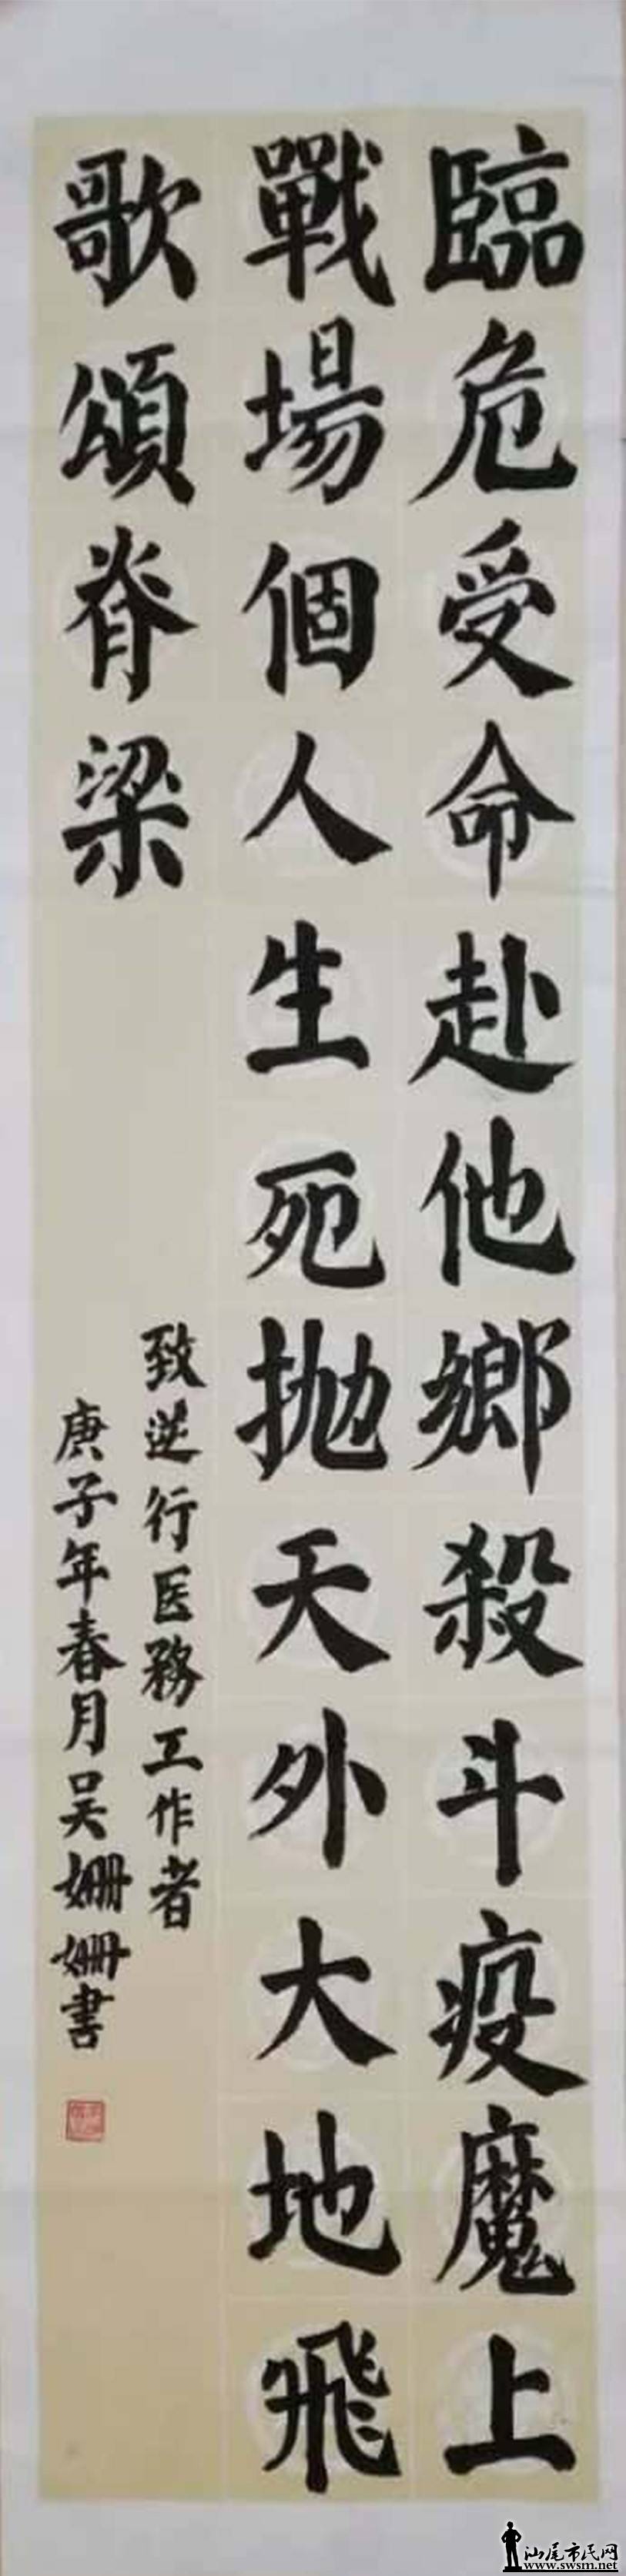 臨危受命赴他鄉殺斗疫魔上
戰場個人生死抛天外大地飛
歌頌脊梁
致逆行医務工作者
庚子年春月吴姗姗書
汕尾市民网
www.swsm.net